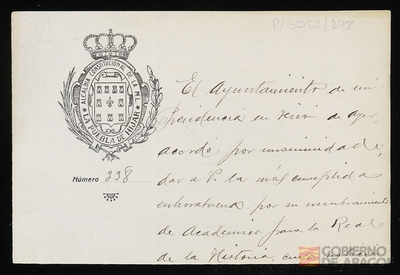 P/3052/D92
ALCALDÍA CONSTITUCIONAL DE LA M. L.
LA PUEBLA DE HIJAR
Número 338
El Ayuntamiento de mi
Presidencia en sesión de ayer,
acordó por unanimidad
dar a V. la más cumplida
enhorabuena por su nombramiento
de Academico para la Real
de la Historia, cuyo
GOBIERNO
DE ARAGON